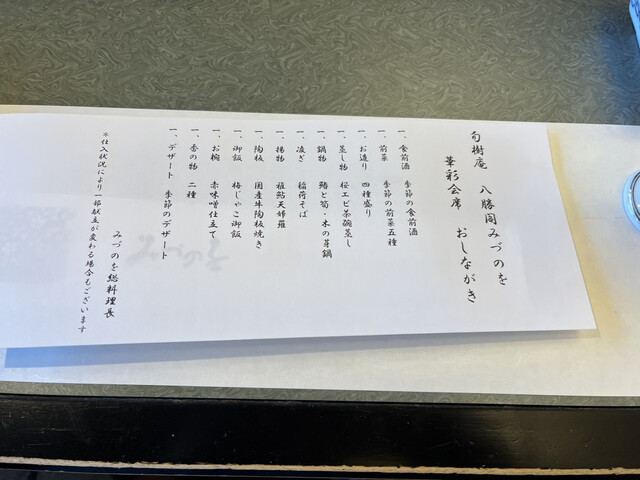 旬樹庵 八勝閣みづのを
華彩会席 おしながき
一、食前酒 季節の食前酒
一、前菜 季節の前菜五種
一、お造り 四種盛り
一、蒸し物 桜エビ茶碗蒸し
一、鍋物 鰆と筍・木の芽鍋
一、凌ぎ 稲荷そば
一、揚物 稚鮎天婦羅
一、陶板 国産牛陶板焼き
一、御飯 梅じゃこ御飯
一、お椀 赤味噌仕立て
一、香の物 二種
一、デザート 季節のデザート
みづのを総料理長
※仕入状況により一部献立が変わる場合もございます